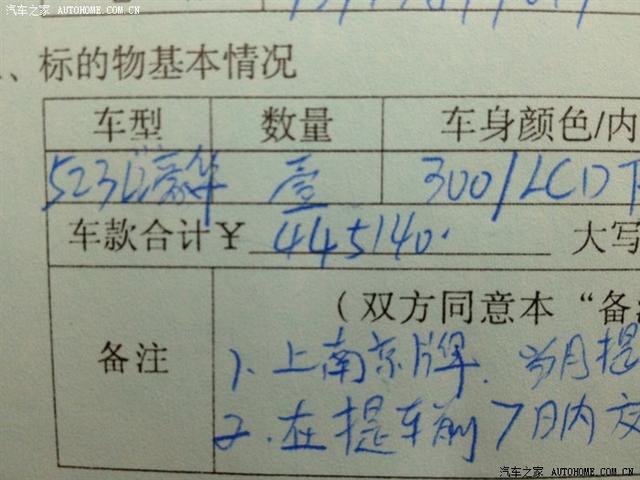 汽车之家 AUTOHOME.COM.CN
、标的物基本情况
车型 数量 车身颜色/内
523Li豪华 壹 300/LCD
车款合计￥ 445140. 大写
(双方同意本“备
备注
1、上南京牌. 当月提
2. 在提车前7日内交
汽车之家 AUTOHOME.COM.CN